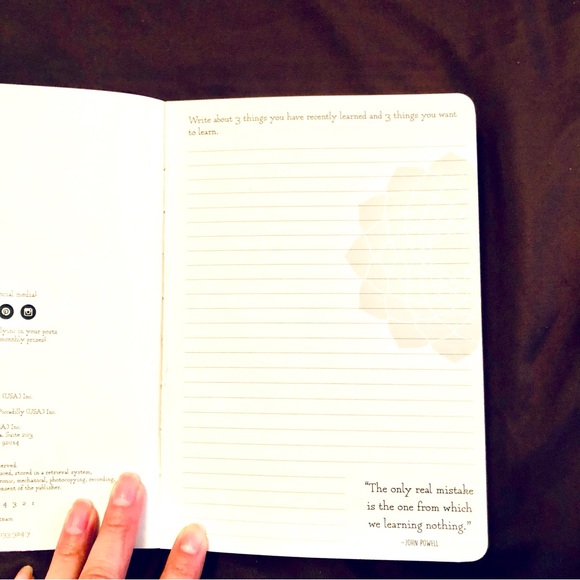 media?
in your posts
monthly prizes!
(USA) Inc.
Piccadilly (USA) Inc.
(USA) Inc.
Suite 203
92014
stored in a retrieval system,
mechanical, photocopying, recording,
of the publisher.
4 3 2 1
Write about 3 things you have recently learned and 3 things you want
to learn.
"The only real mistake
is the one from which
we learning nothing."
-JOHN POWELL